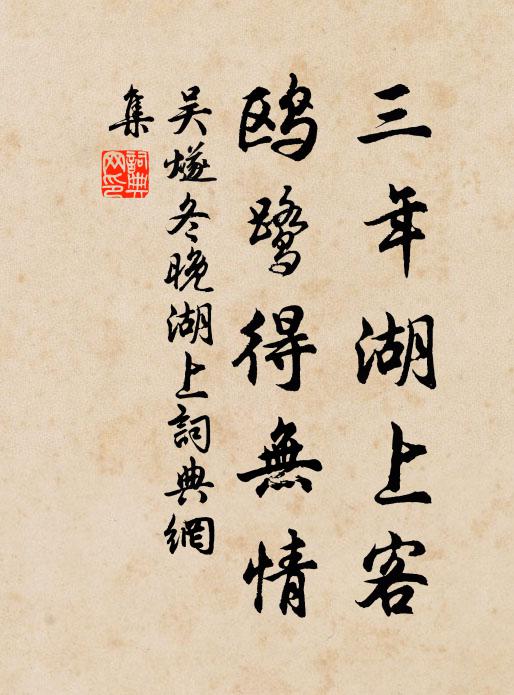 三年湖上客
鸥鹭得無情
吴燧冬晚湖上詞典網
集
詞典网印